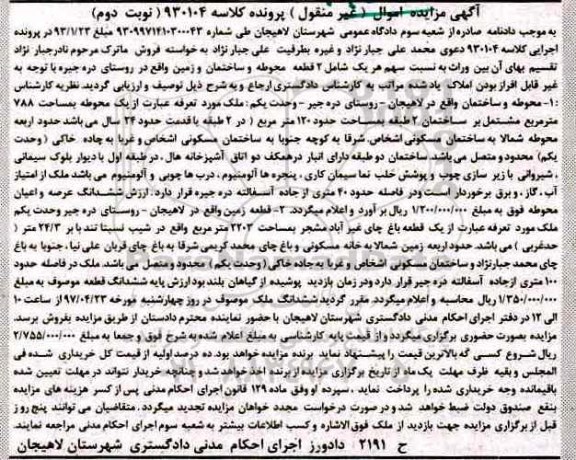 آگهی مزایده اموال ( غیر منقول ) پرونده کلاسه ۹۳۰۱۰۴ ( نوبت دوم)
به موجب دادنامه صادره از شعبه سوم دادگاه عمومی شهرستان لاهیجان طی شماره ۹۳۰۹۹۷۱۴۱۰۳۰۰۰۴۳ مبلغ ۹۳/۱/۲۳ در پرونده
اجرایی کلاسه ۹۳۰۱۰۴ دعوی محمد علی جبار نژاد و غیره بطرفیت علی جبار نژاد به خواسته فروش ماترک مرحوم نادر جبار نژاد
تقسیم بهای آن بین وراث به نسبت سهم هر یک شامل ۲ قطعه محوطه و ساختمان و زمین واقع در روستای دره جیر با توجه به
غیر قابل افراز بودن املاک یاد شده مراتب به کارشناس دادگستری ارجاع و به شرح ذیل توصیف و ارزیابی گردید. نظریه کارشناس
:۱- محوطه و ساختمان واقع در لاهیجان - روستای دره جیر - وحدت یکم : ملک مورد تعرفه عبارت از یک محوطه بمساحت ۷۸۸
مترمربع مشتمل بر ساختمان ۲ طبقه بمساحت حدود ۱۲۰ متر مربع ( در ۲ طبقه با قدمت حدود ۲۴ سال می باشد حدود اربعه
محوطه شمالا به ساختمان مسکونی اشخاص شرقا به کوچه جنوبا به ساختمان مسکونی اشخاص و غربا به جاده خاکی ( وحدت
یکم) محدود و متصل می باشد. ساختمان دو طبقه دارای انبار در همکف دو اتاق آشپزخانه هال ، در طبقه اول با دیوار بلوک سیمانی
، شیروانی با زیر سازی چوب و پوشش حلب نما سیمان کاری ، پنجره ها آلومنیوم ، درب ها چوبی و آلومنیوم می باشد ملک از امتیاز
آب ، گاز ، و برق برخوردار است ودر فاصله حدود ۴۰ متری از جاده آسفالته دره جیره قرار دارد . ارزش ششدانگ عرصه و اعیان
محوطه فوق به مبلغ ۱/۲۰۰/۰۰۰/۰۰۰ ریال بر آورد و اعلام میگردد. ۲- قطعه زمین واقع در لاهیجان - روستای دره جیر وحدت یکم
ملک مورد تعرفه عبارت از یک قطعه باغ چای غیر آباد مشجر بمساحت ۲۲۰۳ متر مربع واقع در شیب نسبتا تند با بر ۲۴/۳ متر (
حدغربی ) می باشد. حدود اربعه زمین شمالا به خانه مسکونی و باغ چای محمد کریمی شرقا به باغ چای قربان علی نیا ، جنوبا به باغ
چای محمد جبار نژاد و ساختمان مسکونی اشخاص و غربا به جاده خاکی ( وحدت یکم ) محدود و متصل می باشد. ملک در فاصله حدود
۱۰۰ متری از جاده آسفالته دره جیر قرار دارد ودر زمان بازدید پوشیده از گیاهان بلند بود ارزش پایه ششدانگ قطعه موصوف به مبلغ
۱/۳۵۰/۰۰۰/۰۰۰ ریال محاسبه و اعلام میگردد. مقرر گردید ششدانگ ملک موصوف در روز چهارشنبه مورخه ۹۷/۰۴/۲۳ از ساعت ۱۰
الی ۱۲ در دفتر اجرای احکام مدنی دادگستری شهرستان لاهیجان با حضور نماینده محترم دادستان از طریق مزایده بفروش برسد.
مزایده بصورت حضوری برگزاری میگردد و از قیمت پایه کارشناسی به مبلغ اعلام شده به شرح فوق و جمعا به مبلغ ۲/۷۵۵/۰۰۰/۰۰۰
ریال شروع کسی که بالاترین قیمت را پیشنهاد نماید برنده مزایده خواهد بود. ده درصد اولیه از قیمت کل خریداری شده فی
المجلس و بقیه ظرف مهلت یک ماه از تاریخ برگزاری مزایده از برنده اخذ خواهد شد و چنانچه خریدار نتواند در مهلت تعیین شده
باقیمانده وجه خریداری شده را پرداخت نماید ، سپرده او وفق ماده ۱۲۹ قانون اجرای احکام مدنی پس از کسر هزینه های مزایده
بنفع صندوق دولت ضبط خواهد شد و در صورت درخواست مجدد خواهان مزایده تجدید میگردد . متقاضیان می توانند پنج روز
قبل از برگزاری مزایده جهت بازدید از ملک فوق الاشاره و کسب اطلاعات بیشتر به شعبه سوم اجرای احکام مدنی مراجعه نمایند.
ح ۲۱۹۱ دادورز اجرای احکام مدنی دادگستری شهرستان لاهیجان